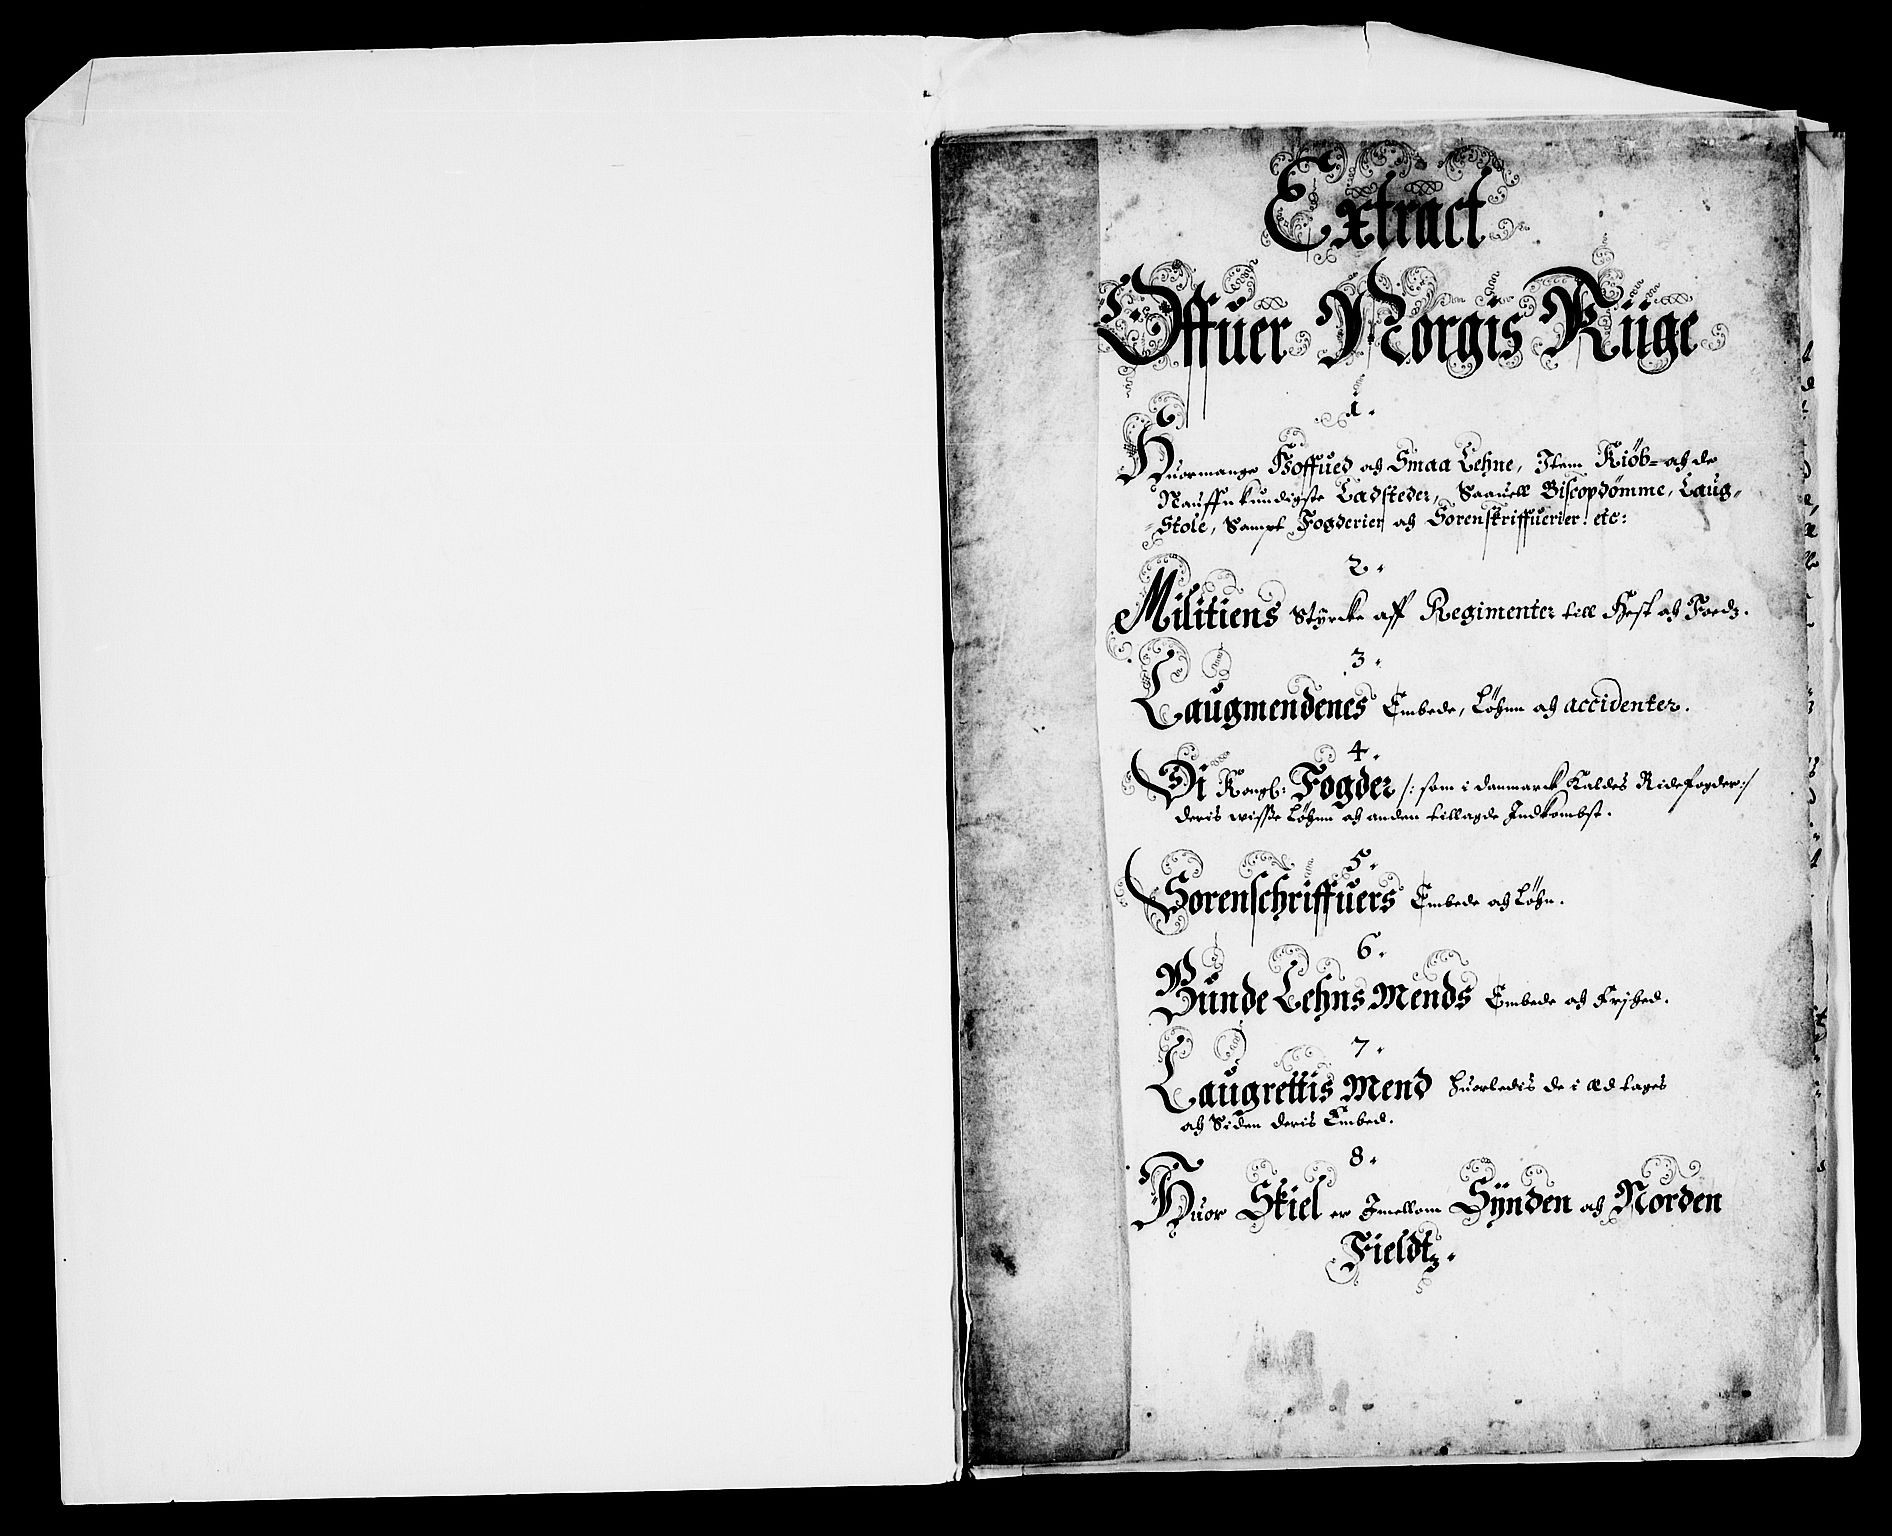 Extract
Offuer Norgis Riige
1.
Huormange Hoffued och Smaa Lehne, Item Kiöb= och de
Nauffnkundigste Ladsteder, Saauell Biscopdömme, Laug-
-Stole, Sampt Fogderier och Sorenskriffuerier. etc:
2.
Militiens Styrcke aff Regimenter till Hest och Foedz.
3.
Laugmendenes Embede, Löhnn och accidenter.
4.
Di Kongl: Fogder /: som i danmarck Kaldes Ridefogder:/
deris wisse Löhnn och anden tillagde Indkombst.
5.
Sorenschriffuers Embede och Löhn.
6.
Bunde Lehns Mends Embede och Frÿhed.
7.
Laugrettis Mend huorledis de i æd tages
och Siden deris Embed.
8.
Huor Skiel er Imellom Sÿnden och Norden
Fieldtz.